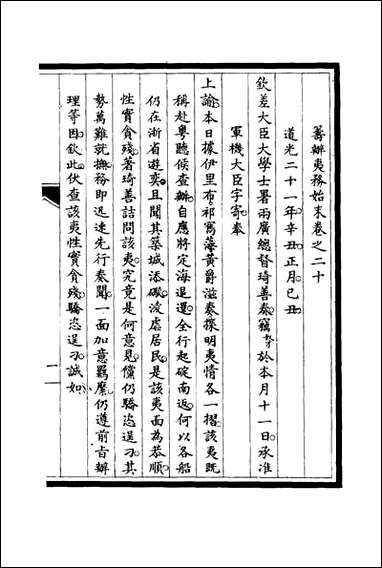 籌辦夷務始末卷之二十
道光二十一年辛丑正月己丑
欽差大臣大學士署兩廣總督琦善奏竊奴才於本月十一日承准
軍機大臣字寄奉
上諭本日據伊里布祁寯藻黃爵滋奏探明夷情各一摺該夷既
稱赴粵聽候查辦自應將定海逞還全行起碇南返何以各船
仍在浙省遊奕且聞其築城添礮淩虐居民是該夷面為恭順
性實貪殘著琦善詰問該夷究竟是何意見儻仍驕恣逞刁其
勢萬難就撫務即迅速先行奏聞一面加意羈縻仍遵前旨辦
理等因欽此伏查該夷性實貪殘驕恣逞刁誠如
一